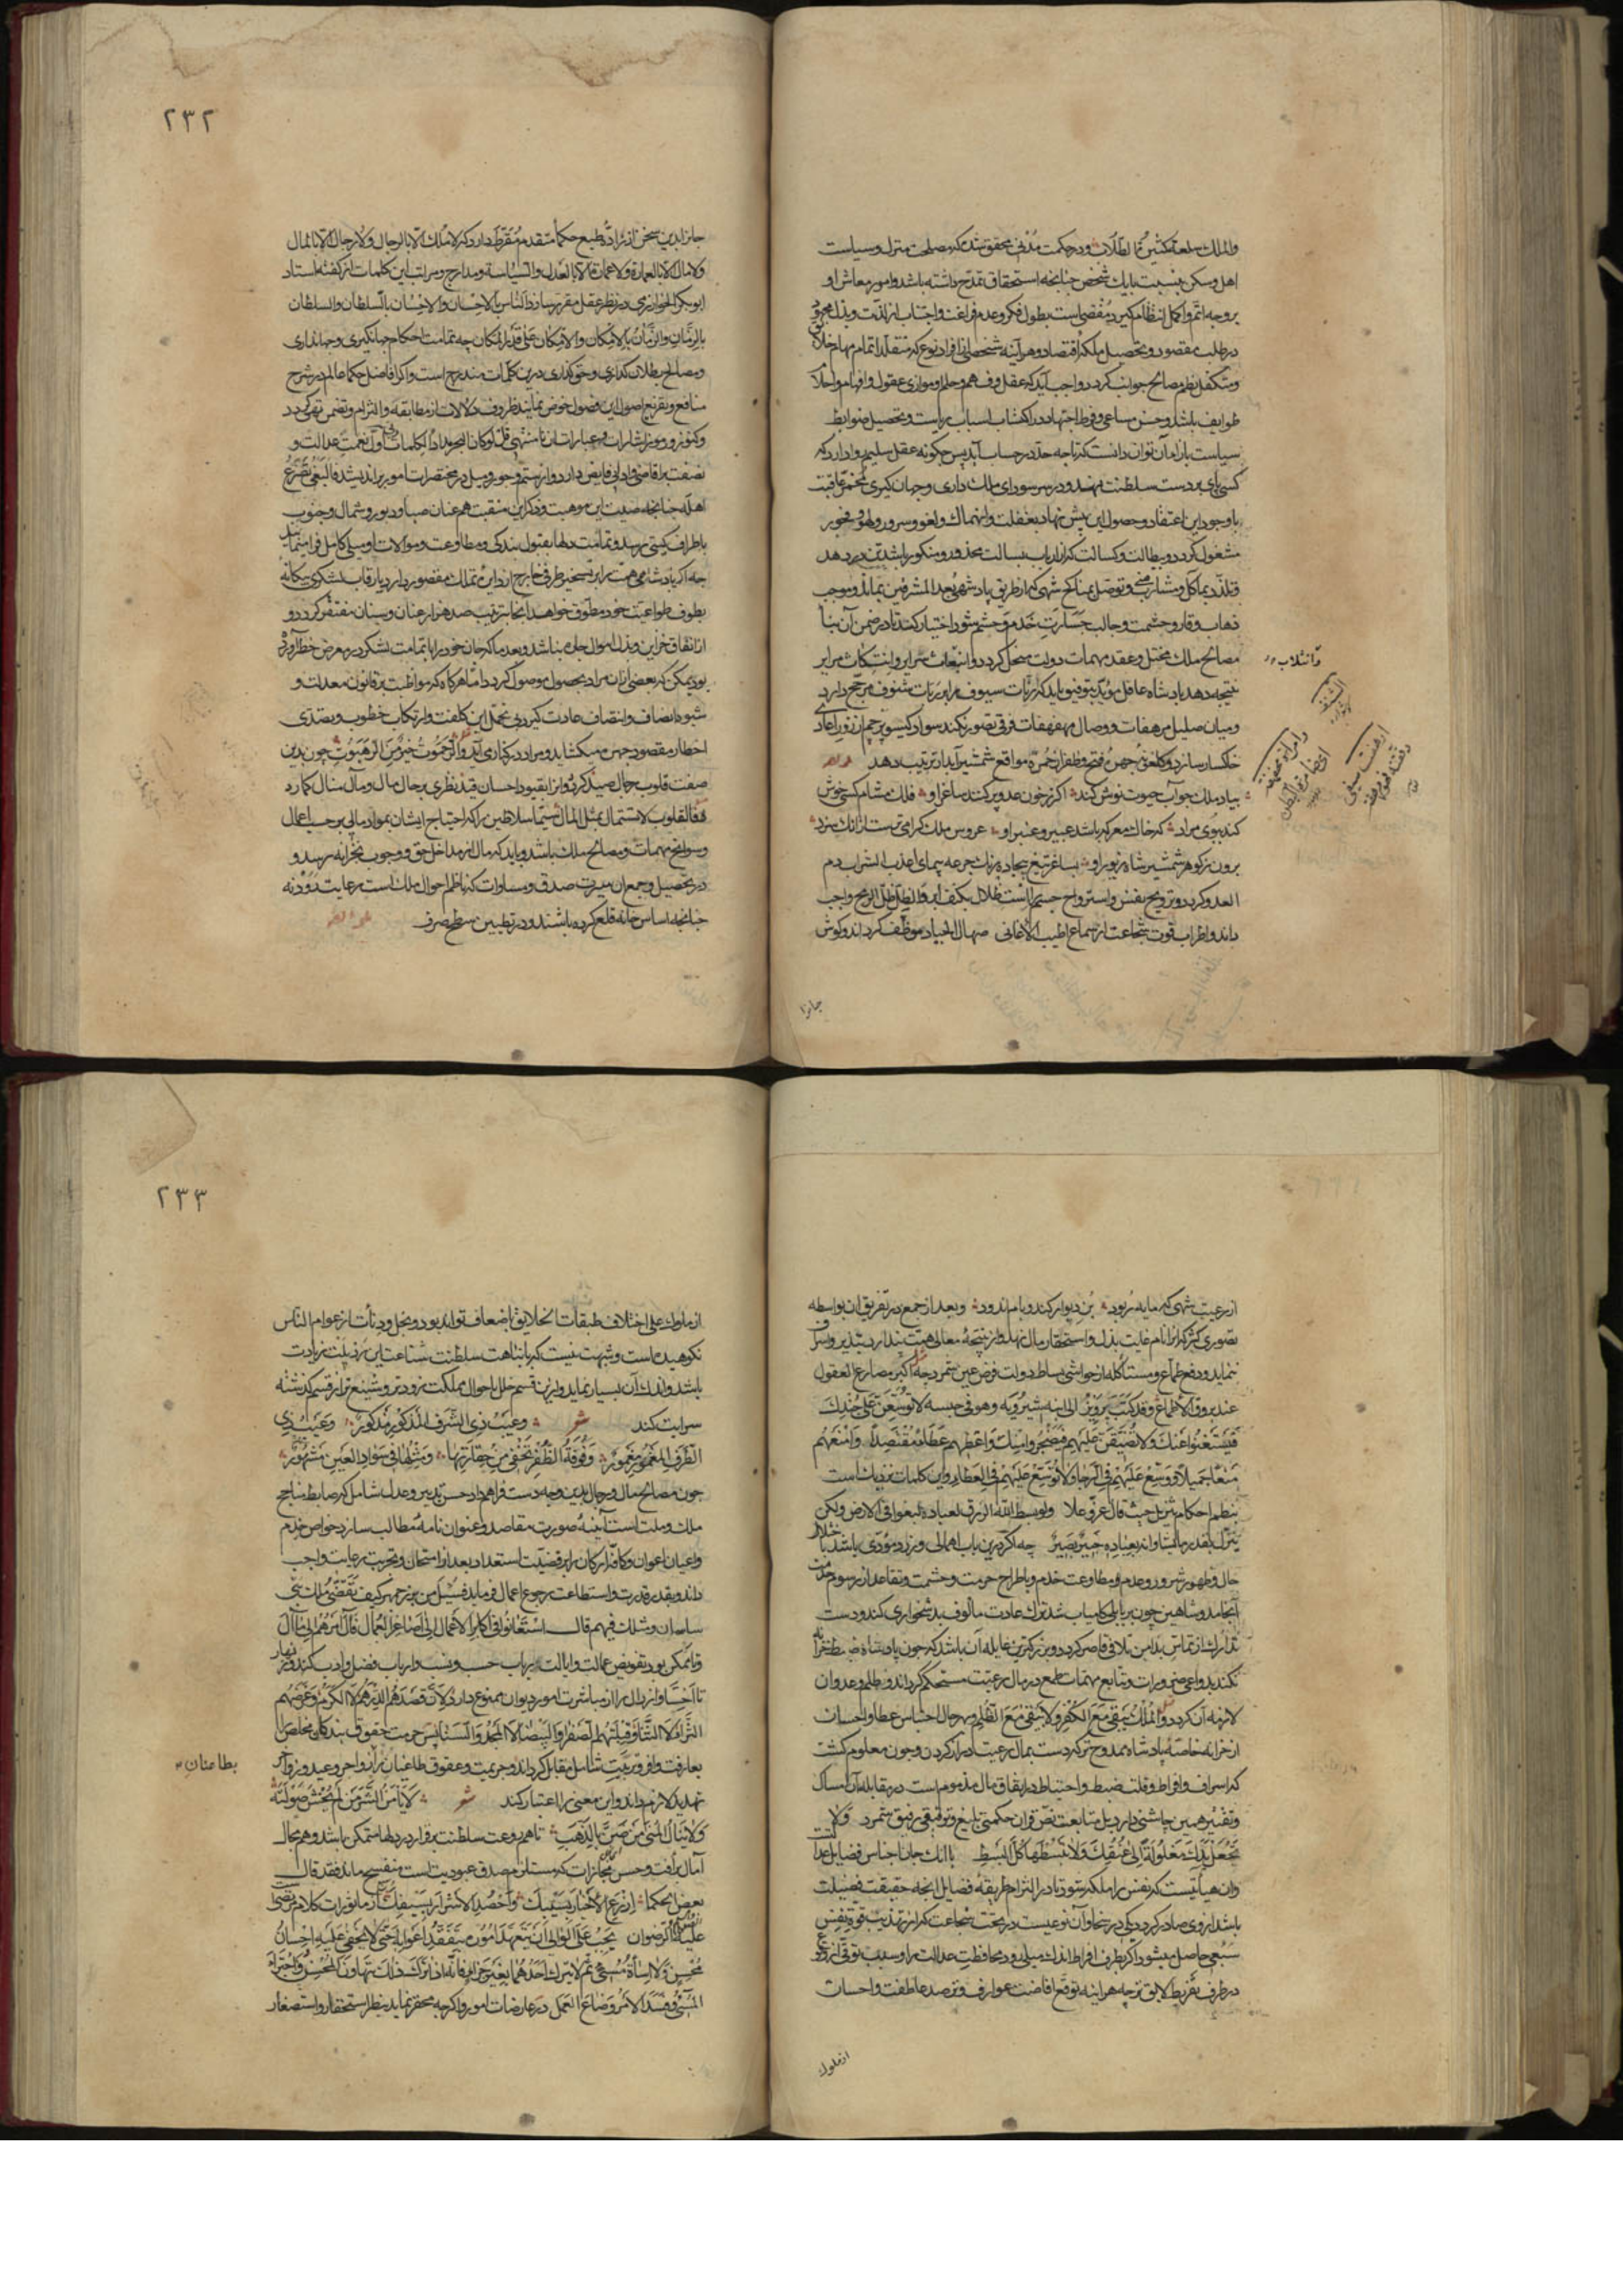 والملك سلعة كثير الطلاب و در حکمت مدنی محقق شد که مصلحت منزل و سیاست
اهل مسکن بنسبت با یک شخص چنانچه استحقاق تمدح داشته باشد و امور معاش او
بر وجه اتم و اکمل انتظام گیرد مفضی است بطول فکر و عدم فراغت و اجتناب از لذت و بذل مجهود
در طلب مقصود و تحصیل ملکه اقتصاد و هر آینه شخصی از افراد نوع که متقلد اتمام مهام خلایق
و متکفل نظم مصالح جوانب گردد واجب آید که عقل و فهم و حلم او موازی عقول و افهام و احلام
طوایف باشد و حسن مساعی و فرط اجتهاد در اکتساب اسباب ریاست و تحصیل ضوابط
سیاست باز آن توان دانست که تا چه حد در حساب آید پس چگونه عقل سلیم روا دارد که
کسی پای بر دست سلطنت نهد و در سر سودای ملک داری و جهان گیری
با وجود این اعتقاد و حصول این پیش نهاد بغفلت و انهماک و لغو و سرور و لهو و فجور
مشغول گردد و ببطالت و کسالت که از ارباب بسالت محذور و منکور باشد تن در دهد
و تلذذ بمآکل و مشارب و توصل بمناکح شهی که از طریق پادشهی بعد المشرقین نماید و موجب
ذهاب وقار و حشمت و جالب جسارت خدم و حشم شود اختیار کند تا در ضمن آن بنا
مصالح ملک مختل و عقد مهمات دولت منحل گردد و انبعاث سرایر و انتکاث مرایر
نتیجه دهد پادشاه عاقل مؤید بتوفیق باید که رنات سیوف بر ربات شنوف مرجح دارد
و میان صلیل مرهفات و وصال مهفهفات فرقی تصور نکند سواد گیسو پرچم از زور اعادی
خاکسار سازد و گلغونه چهره فتح و ظفر از حمره مواقع شمشیر آبدار ترتیب دهد
بیاد ملک چو آب حیوت نوش کند اگر ز خون عدو پر کنند ساغر او فلک مشام کسی خوش
کند ببوی مراد که خاک معرکه باشد عبیر و عنبر او عروس ملک گرامی‌ترست از آنک سزد
برون ز گوهر شمشیر شاه زیور او بساغر تیغ بیجاده رنگ جرعه پیمای اعذب الشراب دم
العدو گردد و ترویح نفس و استرواح جسم را استظلال بکنف اید والظل ظل الریح واجب
داند و اطراب قوت شجاعت از سماع اطیب الاغانی صهال الجیاد موظف گرداند و گوش
جانرا
و انتلاب
۲۳۲
جانرا بدین سخن از نزاد طبع حکما متقدم مقرط دارد که لا ملك الا بالرجال ولا رجال الا بالمال
ولا مال الا بالعمارة ولا عمارة الا بالعدل والسياسة و مدارج و مراتب این کلمات از گفته استاد
ابوبکر الخوارزمی در نظر عقل مقرر سازد الناس بالاحسان والاحسان بالسلطان والسلطان
بالزمان والزمان بالامكان والامكان على قدر المكان چه تمامت احکام جهانگیری و جهانداری
و مصالح بطلان گذاری و حق گذاری درین کلمات مندرج است و اگر افاضل حکما عالم در شرح
منافع و تفریع اصول این فصول خوض نمایند ظروف دلالات از مطابقه و التزام و تضمن تهی گردد
و کنوز و رموز اشارات و عبارات نامتناهی قل لو كان البحر مدادا لكلمات ربی و آن نعمت عدالت و
نصفت بر اقاصی و ادانی فایض دارد و از ستم و جور و میل در مختصرات امور براندیشد فالبغی یصرع
اهله چنانچه صیت این موهبت و ذکر این منقبت هم عنان صبا و دبور و شمال و جنوب
باطراف گیتی برسد و تمامت دلها بقبول بندگی و مطاوعت و موالات او میلی کامل فرا نماید
چه اگر پادشاهی همت بر تسخیر طرفی خارج از دایره تملک مقصور دارد یا رقاب لشکری بیگانه
بطوق طواعیت خود مطوق خواهد اینجا بترتیب صد هزار عنان و سنان مفتقر گردد و
از انفاق خزاین و بذل اموال چاره نباشد و بعد ما که جان خود را با تمامت لشکر در معرض خطر آورده
بود یمکن که بعضی از آن مراد بحصول موصول گردد اما هرگاه که مواظبت بر قانون معدلت و
شیوه انصاف و انتصاف عادت گیرد بی تحمل این کلفت و ارتکاب خطوب و تصدی
اخطار مقصود چهره میگشاید و مراد در کنار می‌آید والرحموت خیر من الرهبوت چون بدین
صفت قلوب رجال صید کرد و آنرا بقیود احسان قید نظری بر حال مال و مآل منال گمارد
فالقلوب لا تستمال بمثل المال سیما سلاطین را که احتیاج ایشان بموارد مالی بر حسب اعمال
و سوانح مهمات و مصالح ملک باشد و باید که مال از مداخل حق و وجوب بخزانه رسد و
در تحصیل و جمع آن سیرت صدق و مساوات که ناظم احوال ملک است رعایت رود نه
چنانچه اساس خانه قلع کرده باشند و در تطیین سطح صرف
از رعیت شهی که مایه ربود بن دیوار کند و بام اندود و بعد از جمع در تفریق آن بواسطه
تصوری کژ که آنرا نام غایت بذل و استحقار مال نهد و از نتیجه معالی همت پندارد تبذیر و اسراف
ننماید و دفع طماع و مستاکله از حواشی بساط دولت فرض عین شمرد چه اکبر مصارع العقول
عند بروق الاطماع و قد کتب پرویز الی ابنه شیرویه و هو فی حبسه لا توسعن علی جندك
فیستغنوا عنك ولا تضیقن علیهم فیضجروا منك و اعطهم عطاء مقتصدا و امنعهم
منعا جمیلا و وسع علیهم فی الرجا ولا توسع علیهم فی العطا و این کلمات نزدیک است
بنظم احکام تنزیل حیث قال عز و علا ولو بسط الله الرزق لعباده لبغوا فی الارض ولكن
ینزل بقدر ما یشاء انه بعباده خبیر بصیر چه اگر درین باب اهمالی ورزد مؤدی باشد باختلال
حال و ظهور شرور و عدم مطاوعت خدم و باطراح حرمت و حشمت و تقاعد از رسوم خدمت
انجامد و شاهین چون بر بابلی کامیاب شد ترک عادت مألوف بدشخواری کند و دست
تدارک از تماس بدامن تلافی قاصر گردد و بزرگترین غایله آن باشد که چون پادشاه ضبط خزانه
نکند بدواعی ضرورات و تتابع مهمات طمع در مال رعیت مستحکم گرداند و ظلم و عدوان
لازمه آن گردد والملك یبقی مع الکفر ولا یبقی مع الظلم و بهر حال احتباس عطا و احسان
از خزانه خاصه پادشاه ممدوح‌تر که دست بمال رعیت دراز کردن و چون معلوم گشت
که اسراف و افراط و قلت ضبط و احتیاط در انفاق مال مذموم است در مقابله آن امساک
و تقتیر همین چاشنی دارد پس متابعت نص قرآن حکمتی بلیغ و توفیقی رفیق شمرد ولا
تجعل یدك مغلولة الی عنقك ولا تبسطها كل البسط با آنک جانا اجناس فضایل عدا
و آن هیأتیست که نفس را ملکه شود تا در التزام طریقه فضایل آنچه حقیقت فضیلت
باشد از وی صادر گردد یکی در سخا و آن نوعیست در تحت شجاعت که از تهذیب قوة نفس
سبعی حاصل میشود اگر بطرف افراط اندک میلی رود محافظت عدالت را و سبب توقی از وقوع
در طرف تفریط لایق‌تر چه هر آینه توقع افاضت عوارف و ترصد عاطفت و احسان
از ملوک
۲۳۳
از ملوک علی اختلاف طبقات الخلایق باضعاف تواند بود و بخل و دنائت از عوام الناس
نکوهیده است و شبهت نیست که با نباهت سلطنت شناعت این رذیلت زیادت
باشد و اندک آن بسیار نماید و ازین قسم خلل احوال مملکت زودتر و شنیع‌تر از قسم گذشته
سرایت کند شعر وعیب ذی الشرف المذكور مذكور وعیب ذی
الطرف المغمور مغمور وفوفة الظفر تخفى من حقارتها ومثلها فی سواد العین مشهور
چون مصالح مال و رجال بدین وجه دست فراهم داد حسن تدبیر و عدل شامل که ضابط مناجح
ملک و ملت است آیینه صورت مقاصد و عنوان نامه مطالب سازد خواص خدم
و اعیان اعوان و کافه ارکان را بر قضیت استعداد بعد از امتحان و تجربت رعایت واجب
داند و بقدر قدرت و استطاعت رجوع اعمال فرماید فسئل من بزرجمهر کیف تقضی ملك بنی
ساسان ومثلك فیهم قال استعانوا فی اكابر الاعمال الی اصاغر العمال فآل امرهم الی ما آل
و تا ممکن بود تفویض عمالت و ایالت بارباب حسب و نسب و ارباب فضل و ادب کند و زنهار
تا اخسا و اراذل را از مباشرت امور دیوان ممنوع دارد لان قصدهم الدرهم لا الكرم وغرضهم
الثراء لا الثناء وقبلتهم الصفراء والبیضاء لا المجد والسناء پس حرمت حقوق بندگان مخلص را
بعارفت وافر و تربیت شامل مقابل گرداند و جریمت و عقوق طاغیان را زواجر وعید و زواجر
تهدید لازم داند و این معنی را اعتبار کند شعر لا یأمن الشر من لم یخش صولته
ولا ینال المنی من ضن بالذهب تا هم روعت سلطنت و وقار در دلها متمکن باشد و هم مجال
آمال برأفت و حسن مجازات که مستلزم صدق عبودیت است منفسح ماند فقد قال
بعض الحکما ازرع الاخیار بسیبك واحصد الاشرار بسیفك از مأثورات کلام مرتضی
علیه الرضوان یجب علی الوالی ان یتعهد اموره ویتفقد اعوانه حتی لا یخفی علیه احسان
محسن ولا اساءة مسیئ ثم لا یترك احدهما بغیر جزاء فانه اذا ترك ذلك تهاون المحسن واجترأ
المسیئ وفسد الامر وضاع العمل در عارضات امور و اگر چه محقر نماید بنظر استحقار و استصغار
بطا عنان